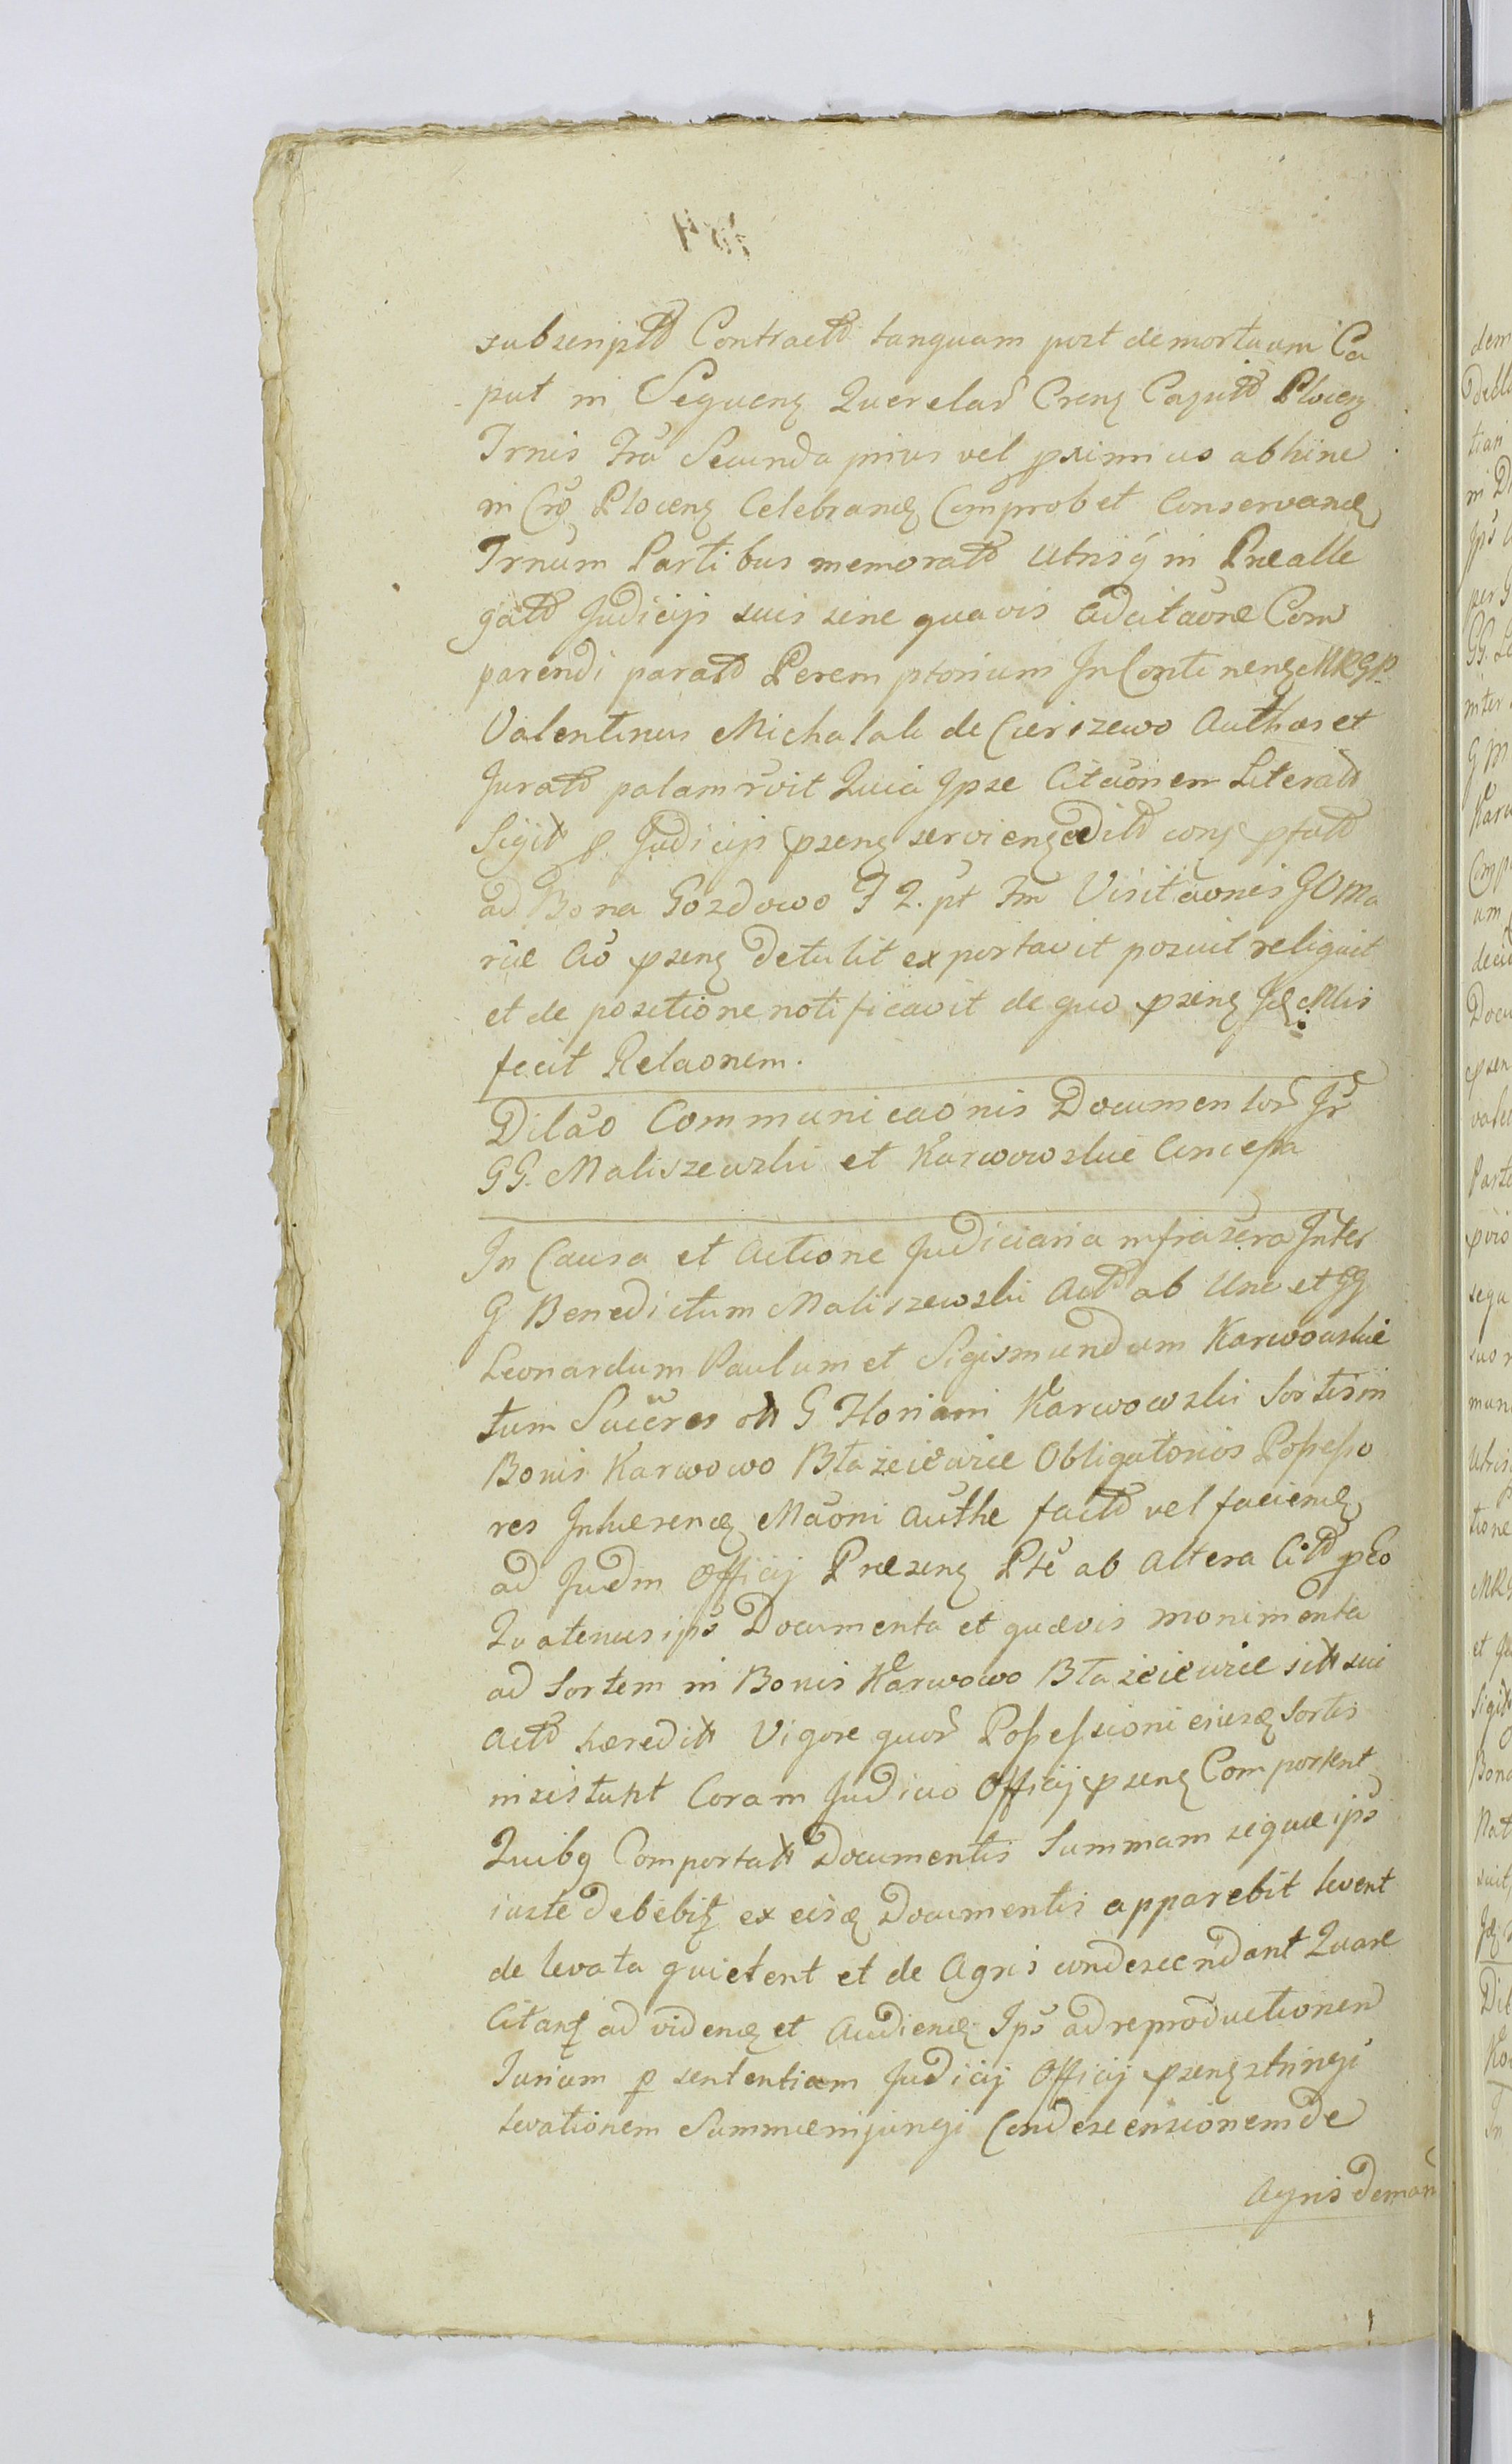 subscriptõ Contractõ tanquam post demortuum Ca
put in Sequenȝ Querelar̃ Crenȝ Caputõ Plocenȝ
Trnis Fra Secunda prius vel pximius abhinc
in Cro Plocenȝ Celebrandȝ Comprobet Conservandȝ
Trnum Partibus memoratõ utrisq̃ in Prealle
gatõ Judicijs suis sine quavis adcitaone Com
parendi paratõ Peremptorium In Continenȝ MRGP
Valentinus Michalak de Cierszewo Author et
Juratõ palam rvit Quia Ipse Citãonem Literatõ
Sigitt p Judicij psenȝ servienȝ editõ
ad Bona Gozdowo F 2. pt Fm Visitãonis GOMa
riæ Aõ psenȝ detulit exportavit posuit reliquit
et de positione notificavit de quo psenȝ Jdȝ Mlis
fecit Relaonem.
Dilão Communicaonis Documentor̃ Jr̃
GG. Maliszewski et Karwowskie Concessa
In Causa et Actione Judiciaria infrascra Inter
G Benedictum Maliszewski Actõ ab Una et GG
Leonardum Paulum et Sigismundum Karwowskie
tum Succres olt G Floriani Karwowski Sortis in
Bonis Karwowo Błazeiewice Obligatorios Possesso
res Inhærendȝ Mãoni Authe factõ vel faciendȝ
ad Judm Officij Præsenȝ Pte ab altera Citõ pEo
Quatenus ips̃ Documenta et quævis monimenta
ad Sortem in Bonis Karwowo Błazeiewice sitt sui
Actõ hæreditt Vigore quor̃ Possessioni eiusdȝ Sortis
insistunt Coram Judicio Officij psenȝ Comportent
Quibq Comportatt Documentis Summam siquæ ips̃
iuste debebitȝ ex eisdȝ Documentis apparebit levent
de levata quietent et de Agris condescendant Quare
Citantȝ ad videndȝ et Audiendȝ Ips̃ ad reproductionem
Jurium p sententiam Judicij Officij psenȝ stringi
levationem Summæ injungi Condescensionem de
Agris deman